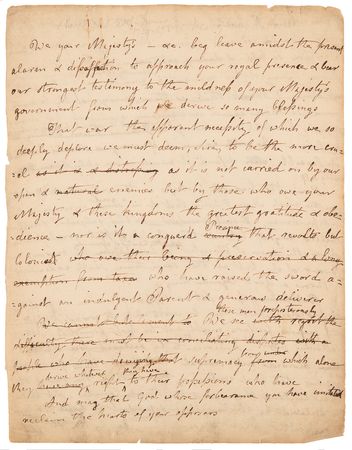 We your Majesty's - &c. beg leave amidst the present
alarm & disaffection to approach your royal presence & bear
our strongest testimony to the mildness of your Majesty's
government from which we derive so many blessings
That war the apparent necessity of which we so
deeply deplore we must deem, Sire, to be the more cru-
-el as it is & distressing as it is not carried on by our
open & natural enemies but by those who owe your
Majesty & these kingdoms the greatest gratitude & obe-
-dience - nor is it a conquerd Province that revolts but
Colonies who owe their being & preservation & always
exemption from taxes who have raised the sword a-
-gainst an indulgent Parent & generous deliverer
these men preposterously
We cannot but lament to We see with regret the
difficulty there must be in conciliating disputes with a
people who have
that supremacy from which alone
they derive whatever they have right to their possessions who have
And may that God whose forbearance you have imitated
reclaim the hearts of your oppressors